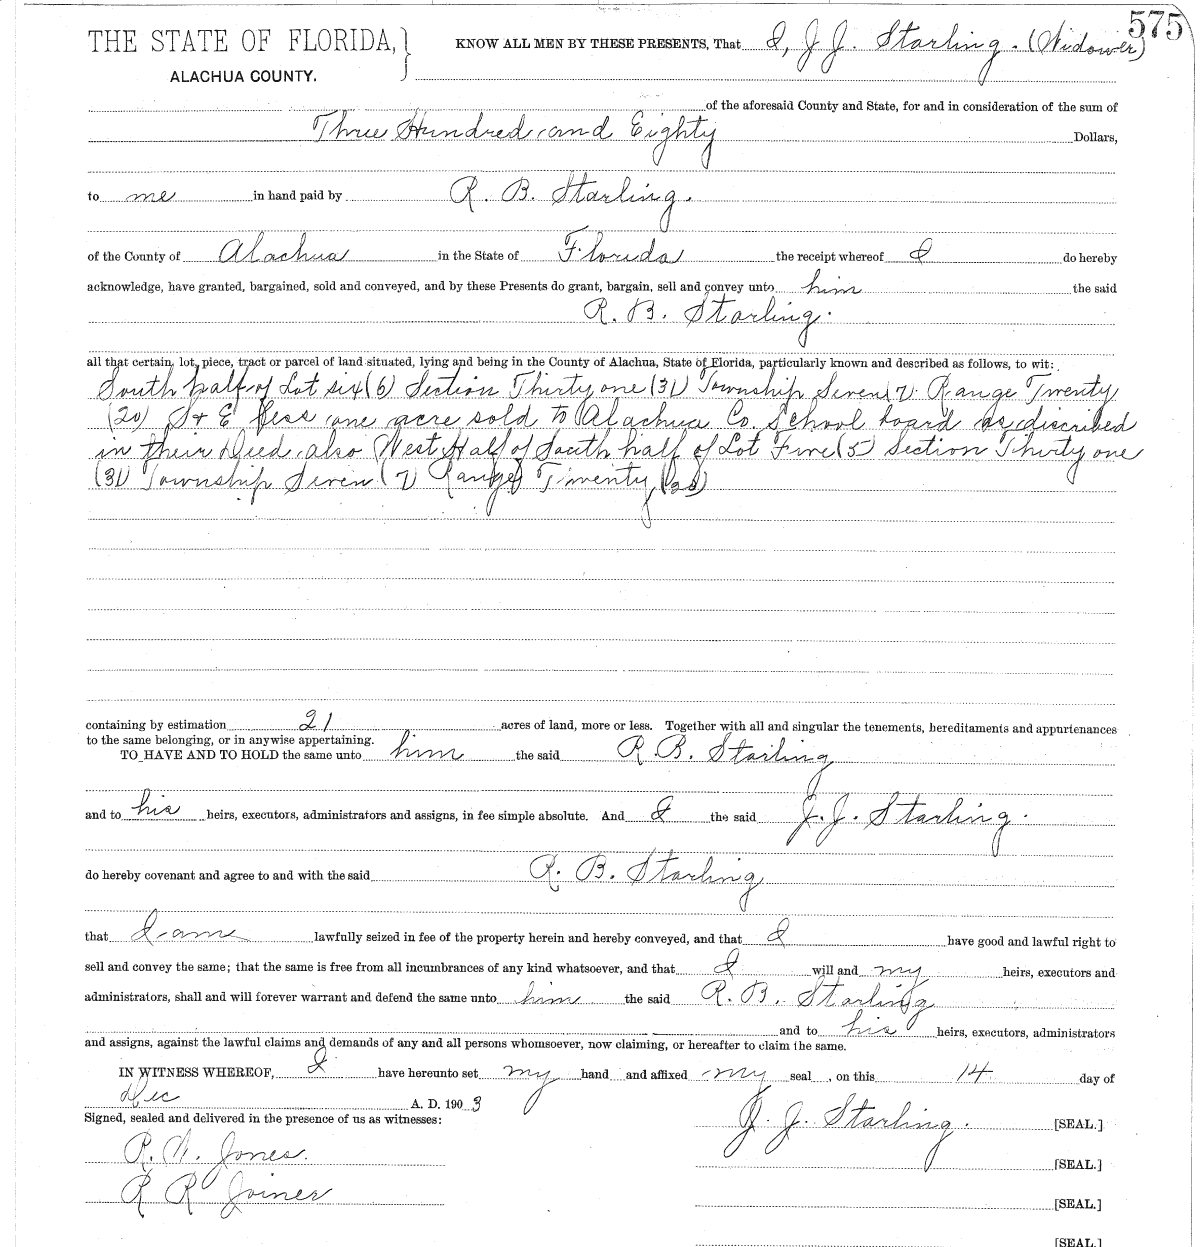 575
THE STATE OF FLORIDA,
ALACHUA COUNTY.
KNOW ALL MEN BY THESE PRESENTS, That I, J J. Starling. (Widower)
of the aforesaid County and State, for and in consideration of the sum of
Three Hundred and Eighty Dollars,
to me in hand paid by R. B. Starling.
of the County of Alachua in the State of Florida the receipt whereof I do hereby
acknowledge, have granted, bargained, sold and conveyed, and by these Presents do grant, bargain, sell and convey unto him the said
R. B. Starling.
all that certain, lot, piece, tract or parcel of land situated, lying and being in the County of Alachua, State of Florida, particularly known and described as follows, to wit:
South half of Lot six (6) Section Thirty one (31) Township Seven (7) Range Twenty
(20) S & E less one acre sold to Alachua Co. School board as discribed
in their Deed also West Half of South half of Lot Five (5) Section Thirty one
(31) Township Seven (7) Range Twenty (20)
containing by estimation 21 acres of land, more or less. Together with all and singular the tenements, hereditaments and appurtenances
to the same belonging, or in anywise appertaining.
TO HAVE AND TO HOLD the same unto him the said R. B. Starling
and to his heirs, executors, administrators and assigns, in fee simple absolute. And I the said J. J. Starling.
do hereby covenant and agree to and with the said R. B. Starling
that I am lawfully seized in fee of the property herein and hereby conveyed, and that I have good and lawful right to
sell and convey the same; that the same is free from all incumbrances of any kind whatsoever, and that I will and my heirs, executors and
administrators, shall and will forever warrant and defend the same unto him the said R. B. Starling
and to his heirs, executors, administrators
and assigns, against the lawful claims and demands of any and all persons whomsoever, now claiming, or hereafter to claim the same.
IN WITNESS WHEREOF, I have hereunto set my hand and affixed my seal, on this 14 day of
Dec A. D. 190 3
Signed, sealed and delivered in the presence of us as witnesses:
J. J. Starling. [SEAL.]
R. W. Jones. [SEAL.]
R R Joiner [SEAL.]
[SEAL.]